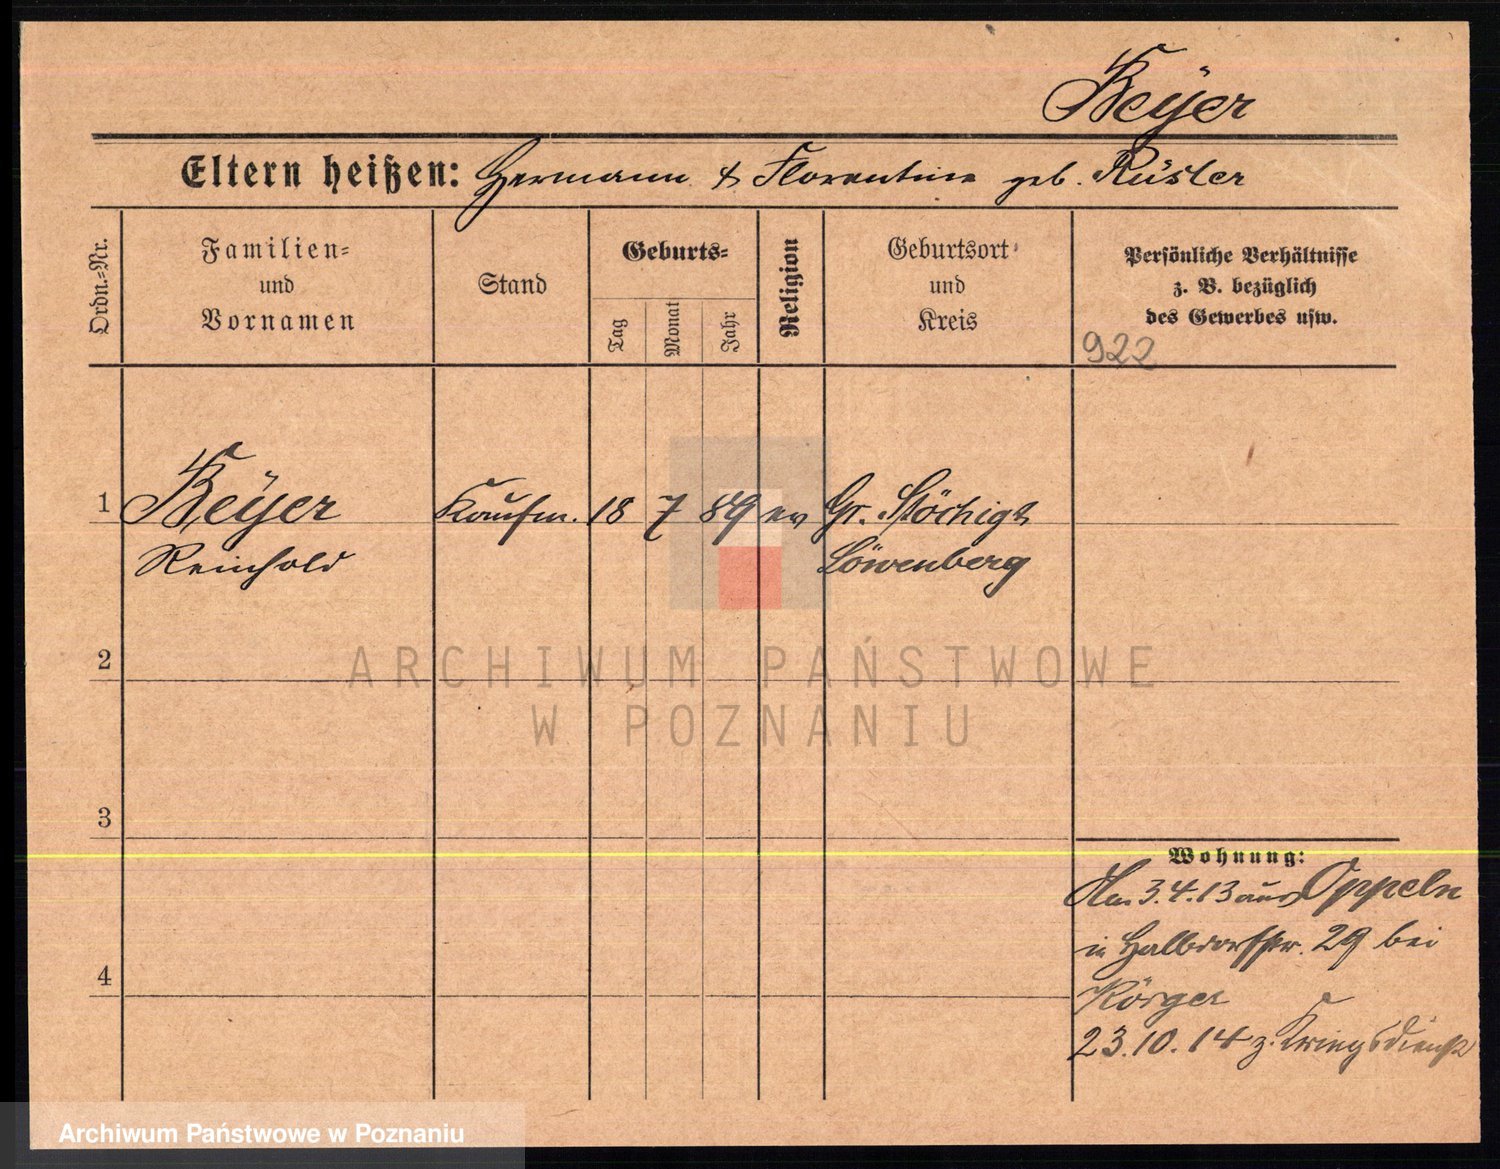 Beÿer
Eltern heißen: Hermann & Florentine geb. Rüster
Ordn.=Nr.
Familien=
und
Vornamen
Stand
Geburts=
Tag
Monat
Jahr
Religion
Geburtsort
und
Kreis
Persönliche Verhältnisse
z. B. bezüglich
des Gewerbes usw.
922
1 Beÿer Kaufm. 18 7 89 ev Gr. Stöckigt
Reinhold Löwenberg
2
ARCHIWUM PAŃSTWOWE
W POZNANIU
3
Wohnung:
Am 3.4.13 aus Oppeln
in Halbdorfstr. 29 bei
4
23.10.14 z. Kriegsdienst
Archiwum Państwowe w Poznaniu